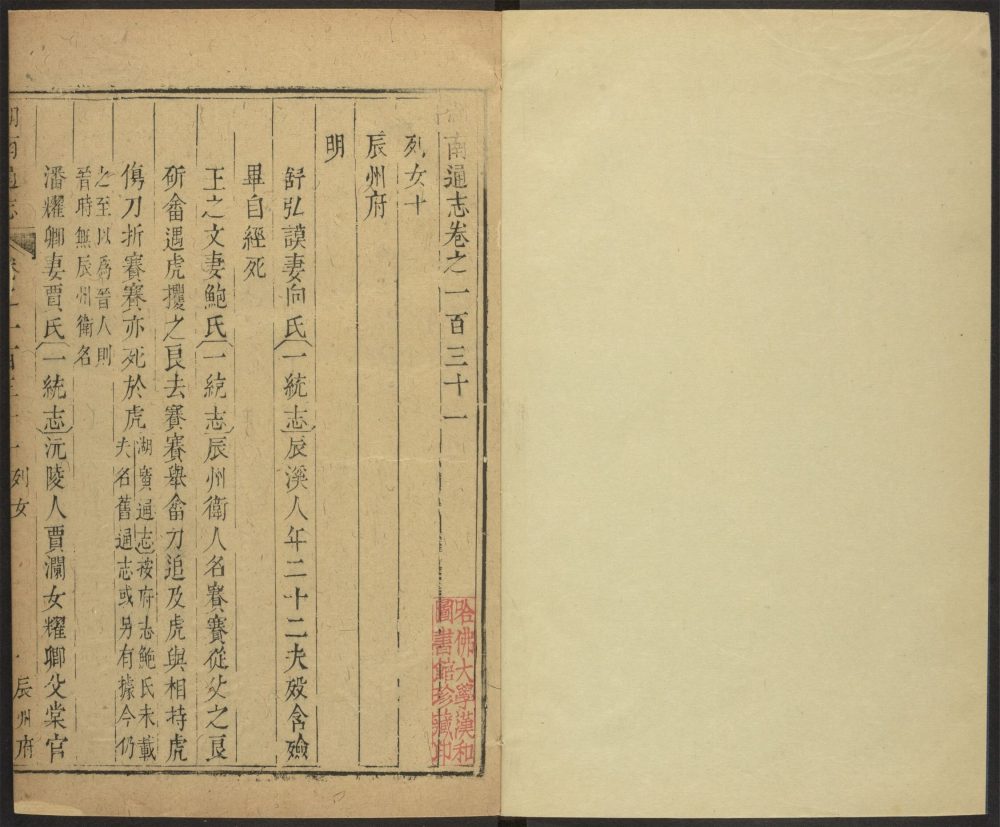 南通志卷之一百三十一
列女十
辰州府
明
舒弘謨妻向氏一統志辰溪人年二十二夫歿含殮
畢自經死
王之文妻鮑氏一統志辰州衛人名賽賽從父之良
斫畬遇虎攫之良去賽賽舉畬刀追及虎與相持虎
傷刀折賽賽亦死於虎湖廣通志按府志鮑氏未載
夫名舊通志或另有據今仍
之至以爲晉人則
晉時無辰州衛名
潘耀卿妻賈氏一統志沅陵人賈瀾女耀卿父棠官
南通志
列女
辰州府
哈佛大學漢和
圖書館珍藏印